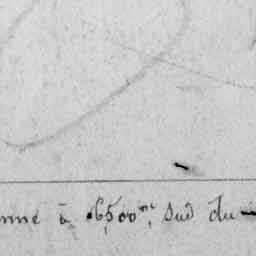 nne à 6500m, Sud du